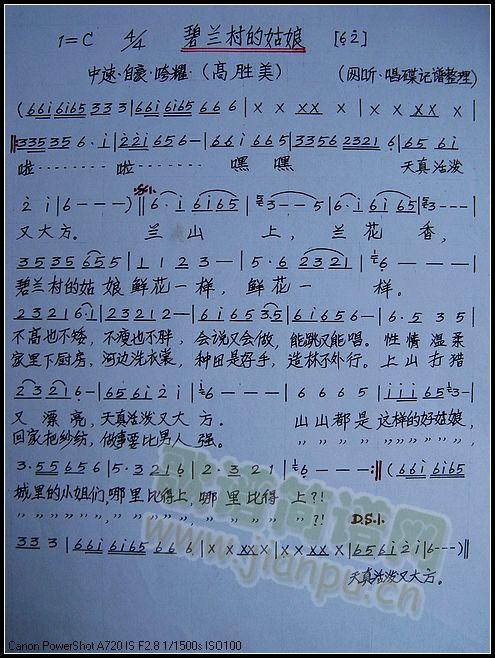 1=C 4/4 碧兰村的姑娘 [6̣2̇]
中速·自豪·夸耀·(高胜美) (网听、唱碟记谱整理)
(66i 6i65 33 3 | 66i 6i65 66 6 | X X XX X | X XX XX X |
335 35 6·i | 22i 65 6— | 66i 665 | 3356 2321 6 | 65 6i
啦……… 啦……… 嘿 嘿 天真活泼
2 i | 6 — — —) ‖ 6·i 6i65 | 3 — — 5 | 6·i 6i65 | 3 — — — |
又大方。 兰 山 上, 兰 花 香,
35 35 65 5 | 1 1 2 3 — | 5·6 2321 | 6 — — — |
碧兰村的姑娘鲜花一样, 鲜花一 样。
不高也不矮, 不瘦也不胖, 会说又会做, 能跳又能唱。 性情温柔
家里下厨房, 河边洗衣裳, 种田是好手, 造林不外行。 上山打猎
3 23 21 6 — | 65 6i 2 i | 6 — — — | 6 6 6 5 | iii 65 3 — |
又 漂亮, 天真活泼又大方。 山山都是这样的好姑娘,
回家把纱纺, 做事要比男人强。 〃 〃 〃 〃 〃 〃 〃 〃 〃 〃
3·5 5656 | 5·321 6 | 2·321 | 6 — — :‖ (66i 6i65
城里的小姐们,哪里比得上,哪里比得上?!
〃 〃 〃 〃 〃, 〃 〃 〃 〃 〃, 〃 〃 〃 〃 〃?! D.S.1.
33 3 | 66i 6i65 66 6 | X X XX X | X XX XX X | 65 6i 2 i | 6 — — —) ‖
天真活泼又大方。
www.jianpu.cn
Canon PowerShot A720 IS F2.8 1/1500s ISO100